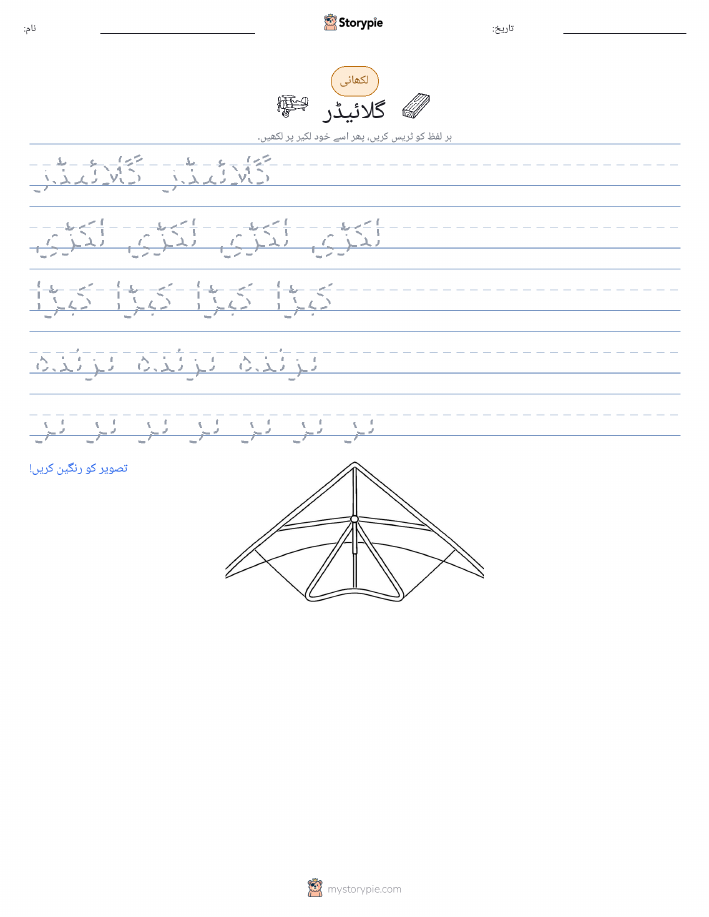 Storypie
نام:
تاریخ:
لکھائی
گلائیڈر
ہر لفظ کو ٹریس کریں، پھر اسے خود لکیر پر لکھیں۔
گلائیڈر گلائیڈر
لکڑی لکڑی لکڑی لکڑی
کپڑا کپڑا کپڑا کپڑا
پرندہ پرندہ پرندہ
پر پر پر پر پر پر پر
تصویر کو رنگین کریں!
mystorypie.com